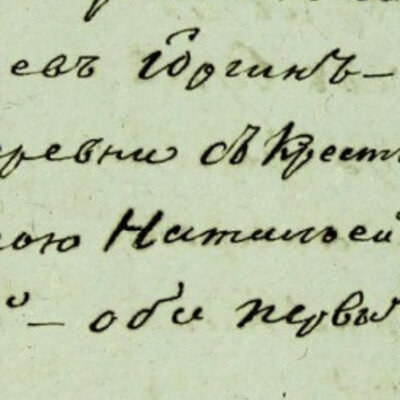 евъ Юргинъ —
ревни съ крест
ою Натальей
й — оба первы